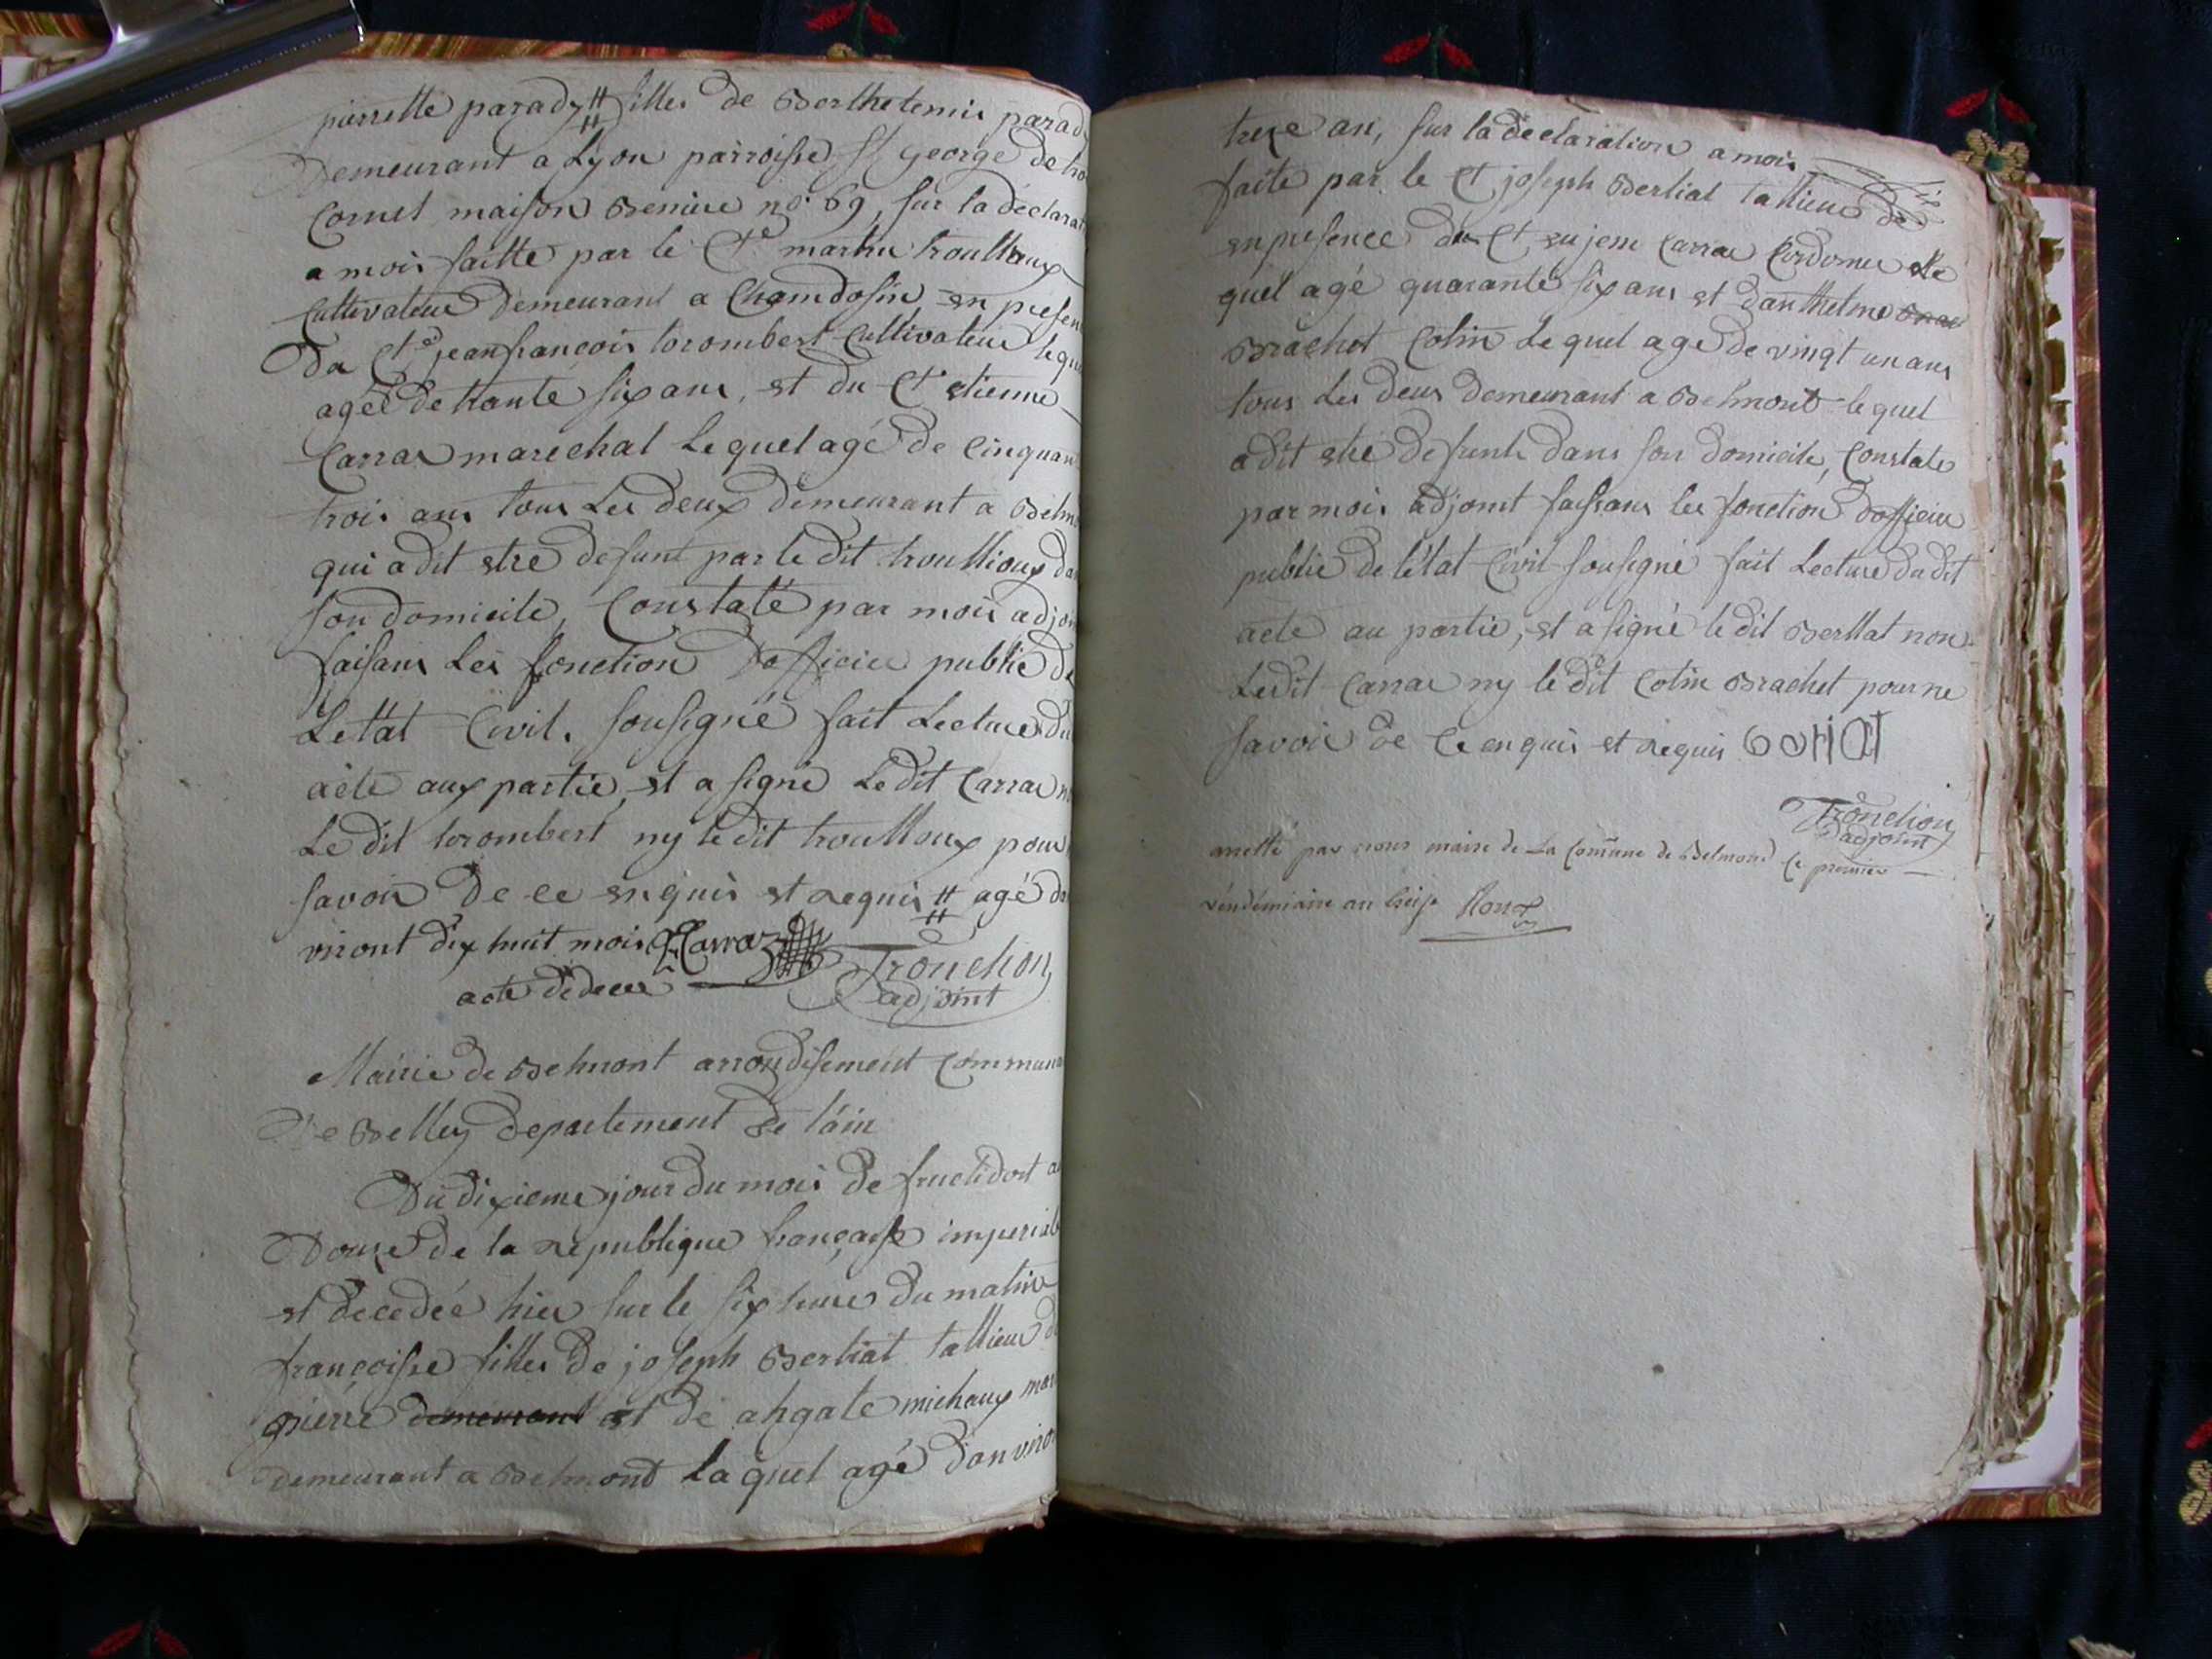 pierrette parady # filles de Berthelemis parad
Demeurant a Lyon parroisse St george de
Cornet maison no. 69, sur la declarat
a mois faitte par le Ct. martin troullioux
Cultivateur Demeurant a Chamdosin en presen
Du Ct. jeanfrançois lorombert Cultivateur lequ
agee de trante six ans, et du Ct. etienne
Carrar marechal Lequel agé de Cinquan
trois ans tous Les deux demeurant a Belm
qui a dit etre defunt par le dit troullioux da
son domicile, Constaté par mois adjoin
faisans Les fonction Dofficier public de
Lettat Civil. sousigné fait Lecture du
acte aux partie, et a signé Ledit Carrar n
Le dit lorombert ny le dit troullioux pour
savoir De ce enquis et requis # agé d
viront dix huit mois Carraz
Tronchon
adjoint
acte dedecee
Mairie de Belmont arrondisement Communa
De Belley departement de l'ain
Du dixieme jour du mois de fructidort a
Douze de la republique françaisse imperial
et decedée hier sur le six heure du matin
françoisse filles de joseph Berliat tallieur d
pierre demeurant et de ahgate michaux mar
demeurant a Belmont laquel agé danviron
treze an, sur la declaration a mois
faite par le Ct joseph Berliat tallieur de
en presence du Ct eujene Carrar Cordonnier le
quel agé quarante six ans et danthelme Brac
Brachet Colin Lequel age de vingt un ans
tous Les deux demeurant a Belmont lequel
a dit etre defunte dans son domicile, Constate
par mois adjoint faissans les fonction dofficier
public de letat Civil sousigné fait Lecture du dit
acte au partie, et a signé le dit Berliat non
Ledit Carrar ny le dit Colin Brachet pour ne
savoir de Ce enquis et requis beriat
Tronchon
adjoint
arretté par nous maire de La Commune de Belmond Ce premier
vendemiaire an treize Roux